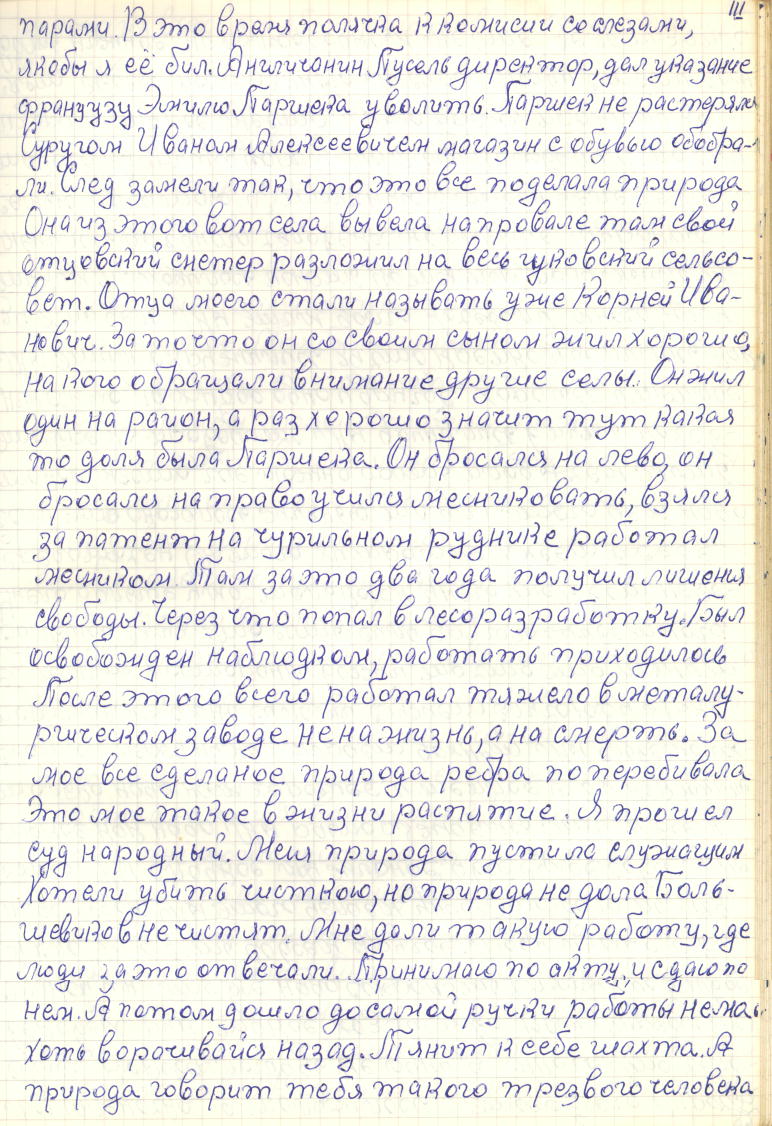 III
парами. В это время полячка к комисии со слезами,
якобы я её бил. Англичанин Пусаль директор, дал указание
французу Эмилю Паршека уволить. Паршек не растерялся
С другом Иваном Алексеевичем магазин с обувью обобра-
ли. След замели так, что это все поделала природа
Она из этого вот села вывела на провале там свой
отцовский снетер разложил на весь гуковский сельсо-
вет. Отца моего стали называть уже Корней Ива-
нович. За то что он со своим сыном жил хорошо,
на кого обращали внимание другие селы. Он жил
один на район, а раз хорошо значит тут какая
то доля была Паршека. Он бросался на лево, он
бросался на право учился месниковать, взялся
за патент на чурильном руднике работал
месником. Там за это два года получил лишения
свободы. Через что попал в лесоразработку. Был
освобожден наблюдком, работать приходилось
После этого всего работал тяжело в металу-
ргическом заводе не на жизнь, а на смерть. За
мое все сделаное природа ребра поперебивала
Это мое такое в жизни распятие. Я прошел
суд народный. Меня природа пустила служащим
Хотели убить чисткою, но природа не дала Боль-
шевиков не чистят. Мне дали такую работу, где
люди за это отвечали. Принимаю по акту, и сдаю по
нем. А потом дошло до самой ручки работы нема.
хоть ворачивайся назад. Тянит к себе шахта. А
природа говорит тебя такого трезвого человека